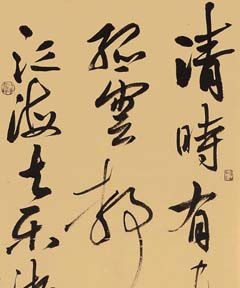 清時有
孤雲靜
江海去樂